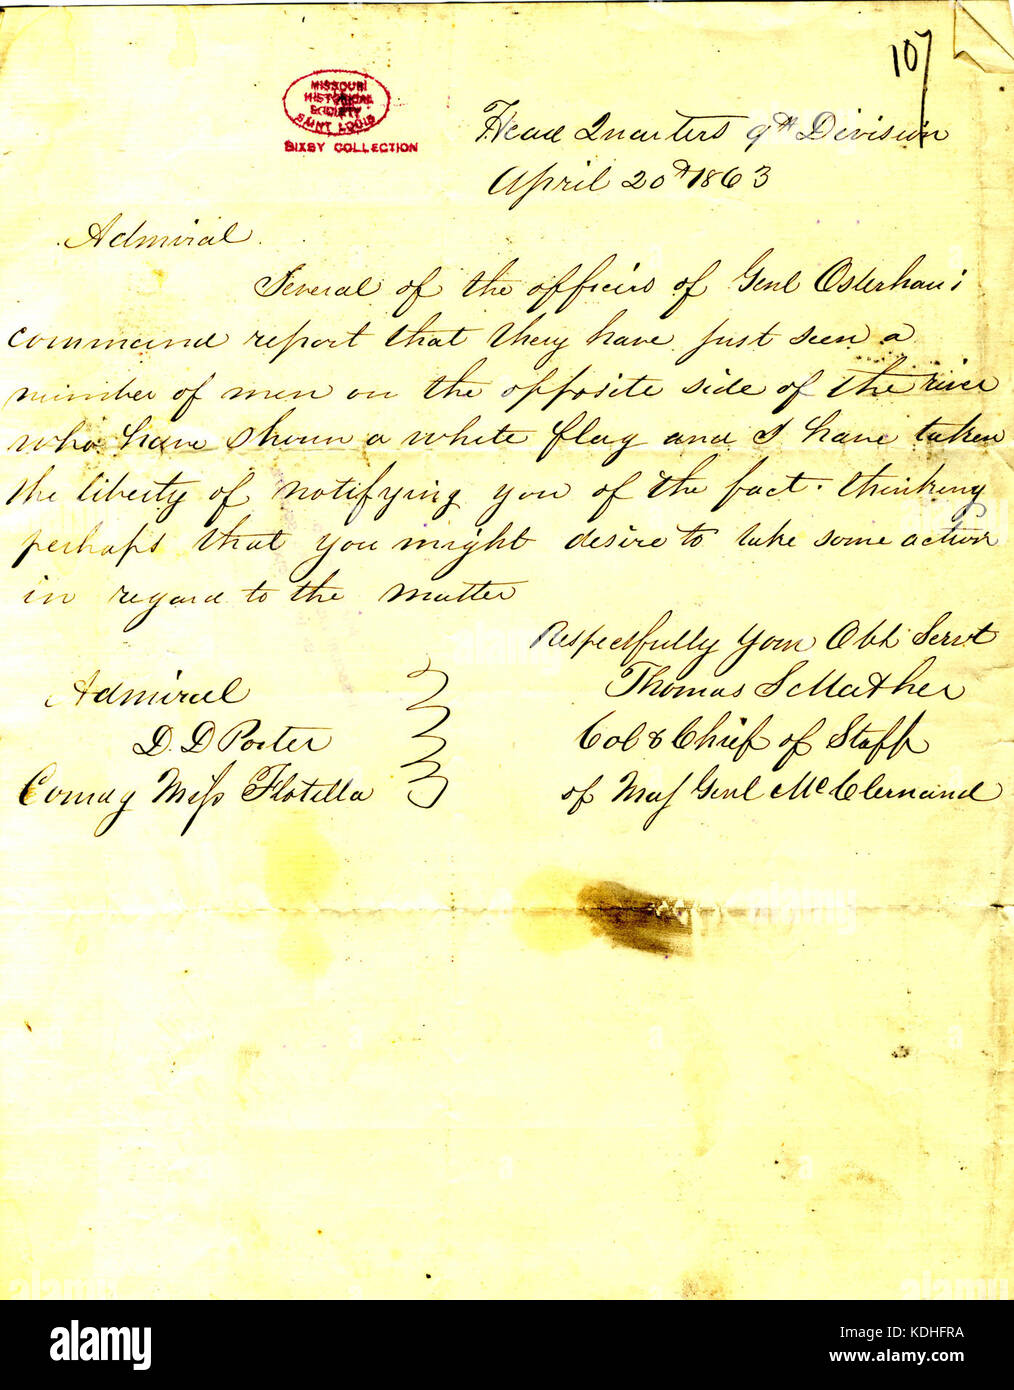 107
MISSOURI
HISTORICAL
SOCIETY
SAINT LOUIS
BIXBY COLLECTION
Head Quarters 9th Division
April 20th 1863
Admiral
Several of the officirs of Genl Osterhaus
command report that they have just seen a
number of men on the opposite side of the river
who have shown a white flag and I have taken
the liberty of notifying you of the fact. thinking
perhaps that you might desire to take some action
in regard to the matter
Respectfully Your Obt Servt
Thomas S Mather
Col & Chief of Staff
of Maj Genl McClernand
Admiral
D. D Porter
Comdg Miss Flotilla
alamy
Image ID: KDHFRA
www.alamy.com